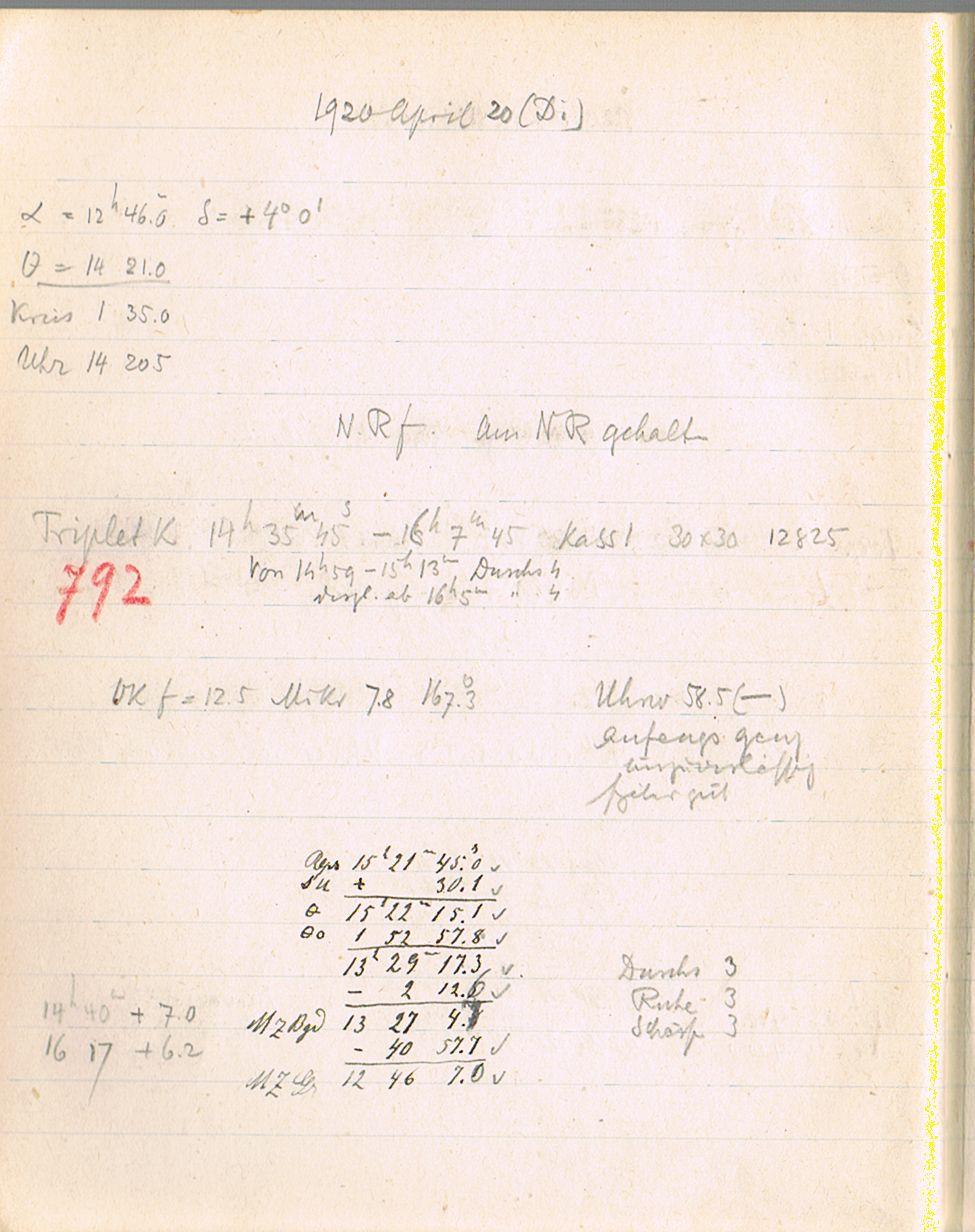 1920 April 20 (Di)
α = 12h 46.m0 δ = +4° 0'
θ = 14 21.0
Kreis 1 35.0
Uhr 14 20 5
N.R f. Am NR gehalt
Triplet K 14h 35m 45s – 16h 7m 45 Kass 1 30x30 12825
792
Von 14h59 – 15h 13m Durchs 4
desgl. ab 16h 5m " 4
OK f = 12.5 Mikr 7.8 167.°3
Uhrw 58.5 (—)
Anfangs ganz
unzuverlässig
später gut
15h 21m 45.s0 ✓
+ 30.1 ✓
θ 15h 22m 15.1 ✓
θo 1 52 57.8 ✓
13h 29m 17.3 ✓
– 2 12.6 ✓
MZ Bgd 13 27 4.7
– 40 57.7 ✓
MZ Gr 12 46 7.0 ✓
Durchs 3
Ruhe 3
Schärfe 3
14h 40m + 7.0
16 17 +6.2